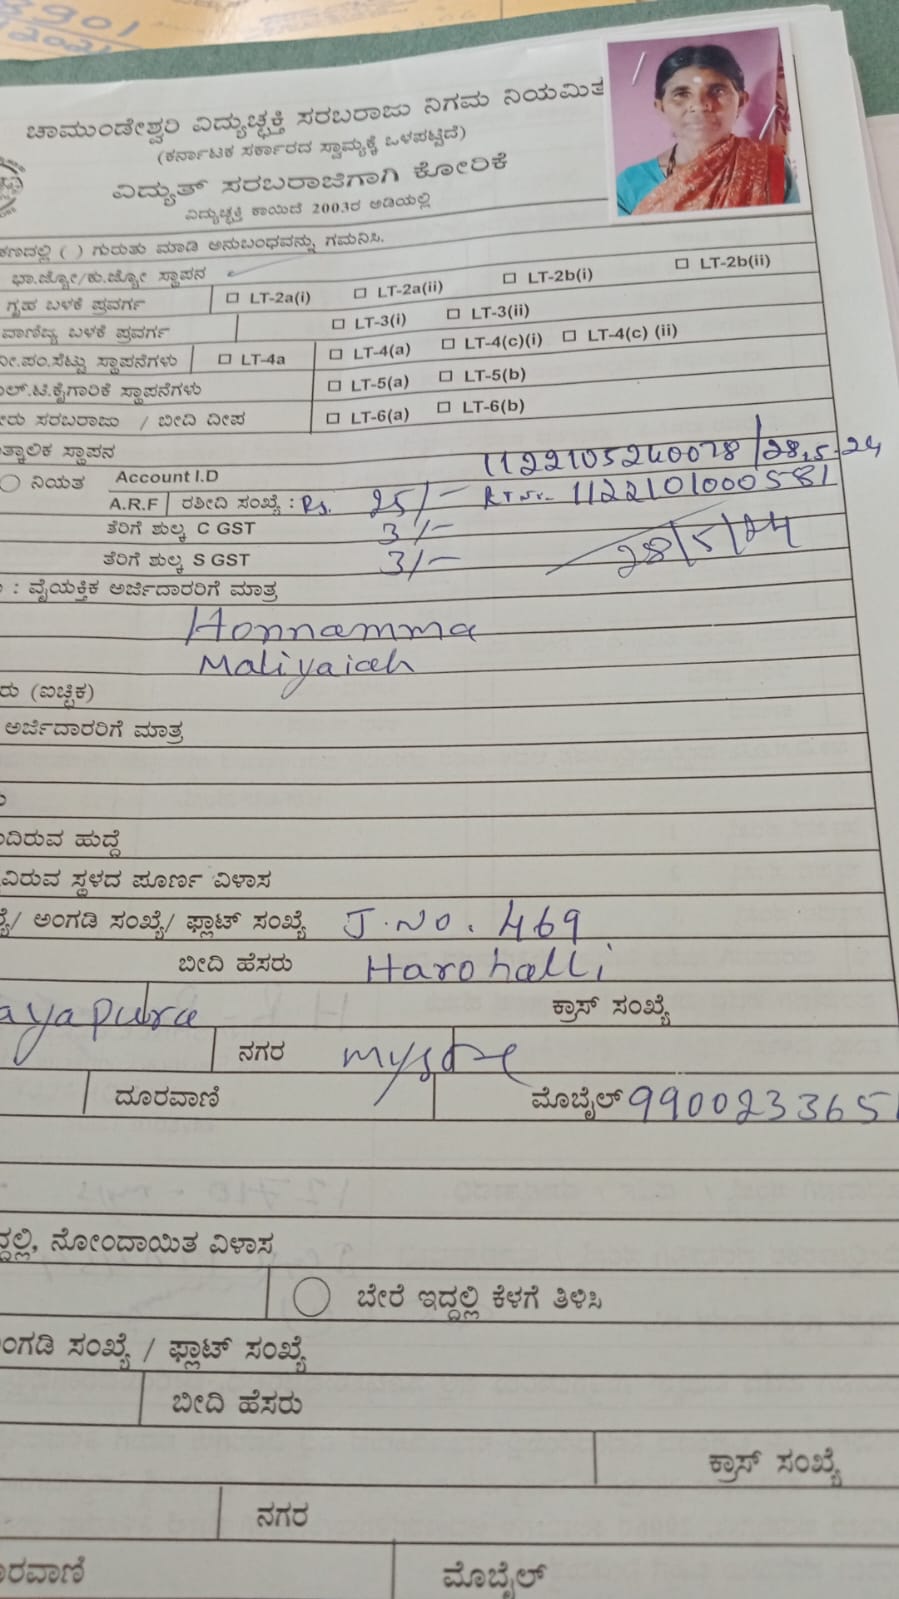 3901
2021
ಚಾಮುಂಡೇಶ್ವರಿ ವಿದ್ಯುಚ್ಛಕ್ತಿ ಸರಬರಾಜು ನಿಗಮ ನಿಯಮಿತ
(ಕರ್ನಾಟಕ ಸರ್ಕಾರದ ಸ್ವಾಮ್ಯಕ್ಕೆ ಒಳಪಟ್ಟಿದೆ)
ವಿದ್ಯುತ್ ಸರಬರಾಜಿಗಾಗಿ ಕೋರಿಕೆ
ವಿದ್ಯುಚ್ಛಕ್ತಿ ಕಾಯಿದೆ 2003ರ ಅಡಿಯಲ್ಲಿ
( ) ಗುರುತು ಮಾಡಿ ಅನುಬಂಧವನ್ನು ಗಮನಿಸಿ.
ಭಾ.ಜ್ಯೋ/ಕು.ಜ್ಯೋ ಸ್ಥಾಪನ
ಗೃಹ ಬಳಕೆ ಪ್ರವರ್ಗ LT-2a(i) LT-2a(ii) LT-2b(i) LT-2b(ii)
ವಾಣಿಜ್ಯ ಬಳಕೆ ಪ್ರವರ್ಗ LT-3(i) LT-3(ii)
ನೀ.ಪಂ.ಸೆಟ್ಟು ಸ್ಥಾಪನೆಗಳು LT-4a LT-4(a) LT-4(c)(i) LT-4(c) (ii)
ಎಲ್.ಟಿ.ಕೈಗಾರಿಕೆ ಸ್ಥಾಪನೆಗಳು LT-5(a) LT-5(b)
ಸರಬರಾಜು / ಬೀದಿ ದೀಪ LT-6(a) LT-6(b)
ಸ್ಥಾಪನ
ನಿಯತ Account I.D 1122105240078/28.5.24
A.R.F ರಶೀದಿ ಸಂಖ್ಯೆ : Rs. 25/- 1122101000581
ತೆರಿಗೆ ಶುಲ್ಕ C GST 3/- 28/5/24
ತೆರಿಗೆ ಶುಲ್ಕ S GST 3/-
: ವೈಯಕ್ತಿಕ ಅರ್ಜಿದಾರರಿಗೆ ಮಾತ್ರ
Honnamma
Maliyaiah
(ಐಚ್ಛಿಕ)
ಅರ್ಜಿದಾರರಿಗೆ ಮಾತ್ರ
ಹುದ್ದೆ
ಸ್ಥಳದ ಪೂರ್ಣ ವಿಳಾಸ
/ ಅಂಗಡಿ ಸಂಖ್ಯೆ/ ಫ್ಲಾಟ್ ಸಂಖ್ಯೆ J.No. 469
ಬೀದಿ ಹೆಸರು Harohalli
ayapura ಕ್ರಾಸ್ ಸಂಖ್ಯೆ
ನಗರ mysore
ದೂರವಾಣಿ ಮೊಬೈಲ್ 990023365
ನೋಂದಾಯಿತ ವಿಳಾಸ
ಬೇರೆ ಇದ್ದಲ್ಲಿ ಕೆಳಗೆ ತಿಳಿಸಿ
ಅಂಗಡಿ ಸಂಖ್ಯೆ / ಫ್ಲಾಟ್ ಸಂಖ್ಯೆ
ಬೀದಿ ಹೆಸರು
ಕ್ರಾಸ್ ಸಂಖ್ಯೆ
ನಗರ
ದೂರವಾಣಿ ಮೊಬೈಲ್